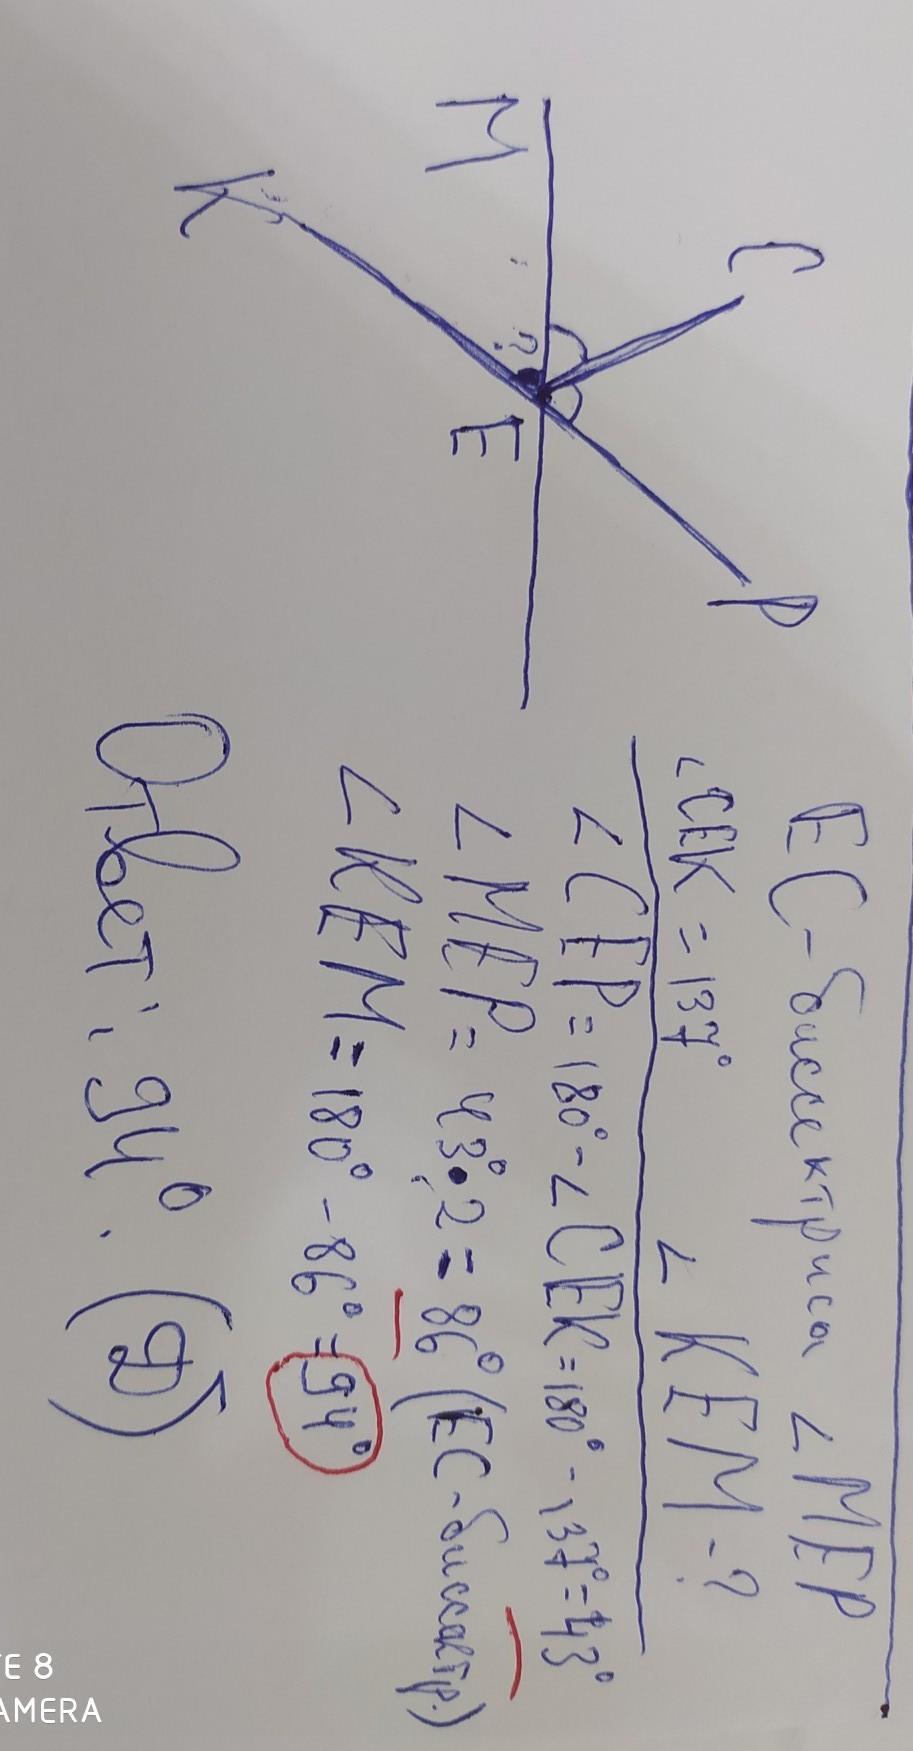 M
C
K
?
E
P
EC-биссектриса ∠MEP
∠CEK = 137° ∠KEM-?
∠CEP = 180° - ∠CEK = 180° - 137° = 43°
∠MEP = 43° • 2 = 86° (EC-биссектр.)
∠KEM = 180° - 86° = 94°
Ответ: 94°. (Д)
TE 8
AMERA